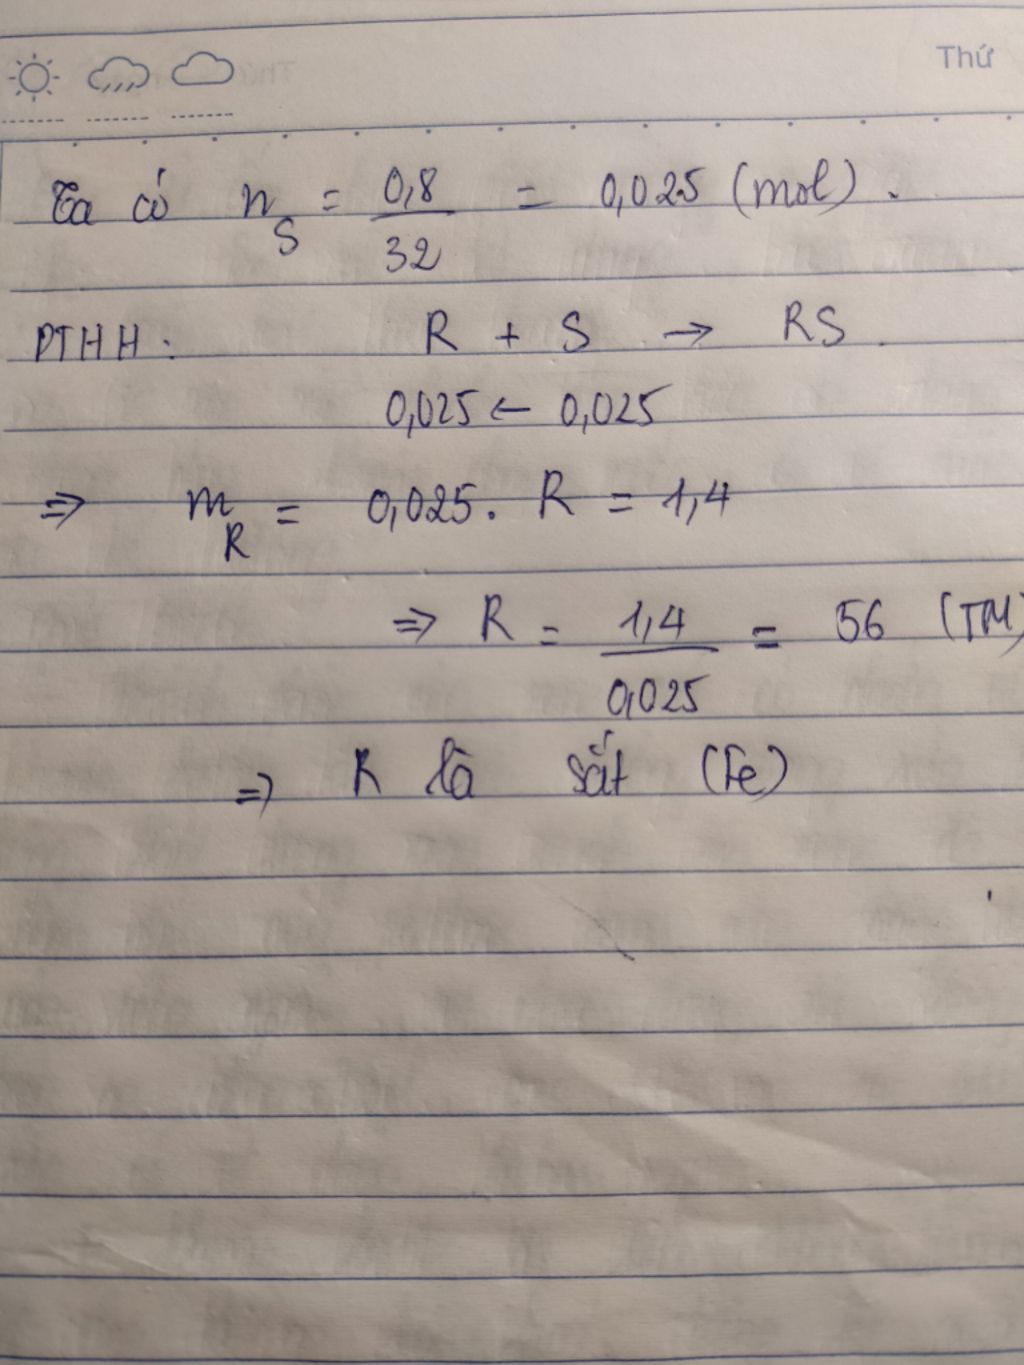 Thứ
Ta có n_S = 0,8/32 = 0,025 (mol).
PTHH: R + S → RS.
0,025 ← 0,025
⇒ m_R = 0,025. R = 1,4
⇒ R = 1,4/0,025 = 56 (TM)
⇒ R là sắt (Fe)